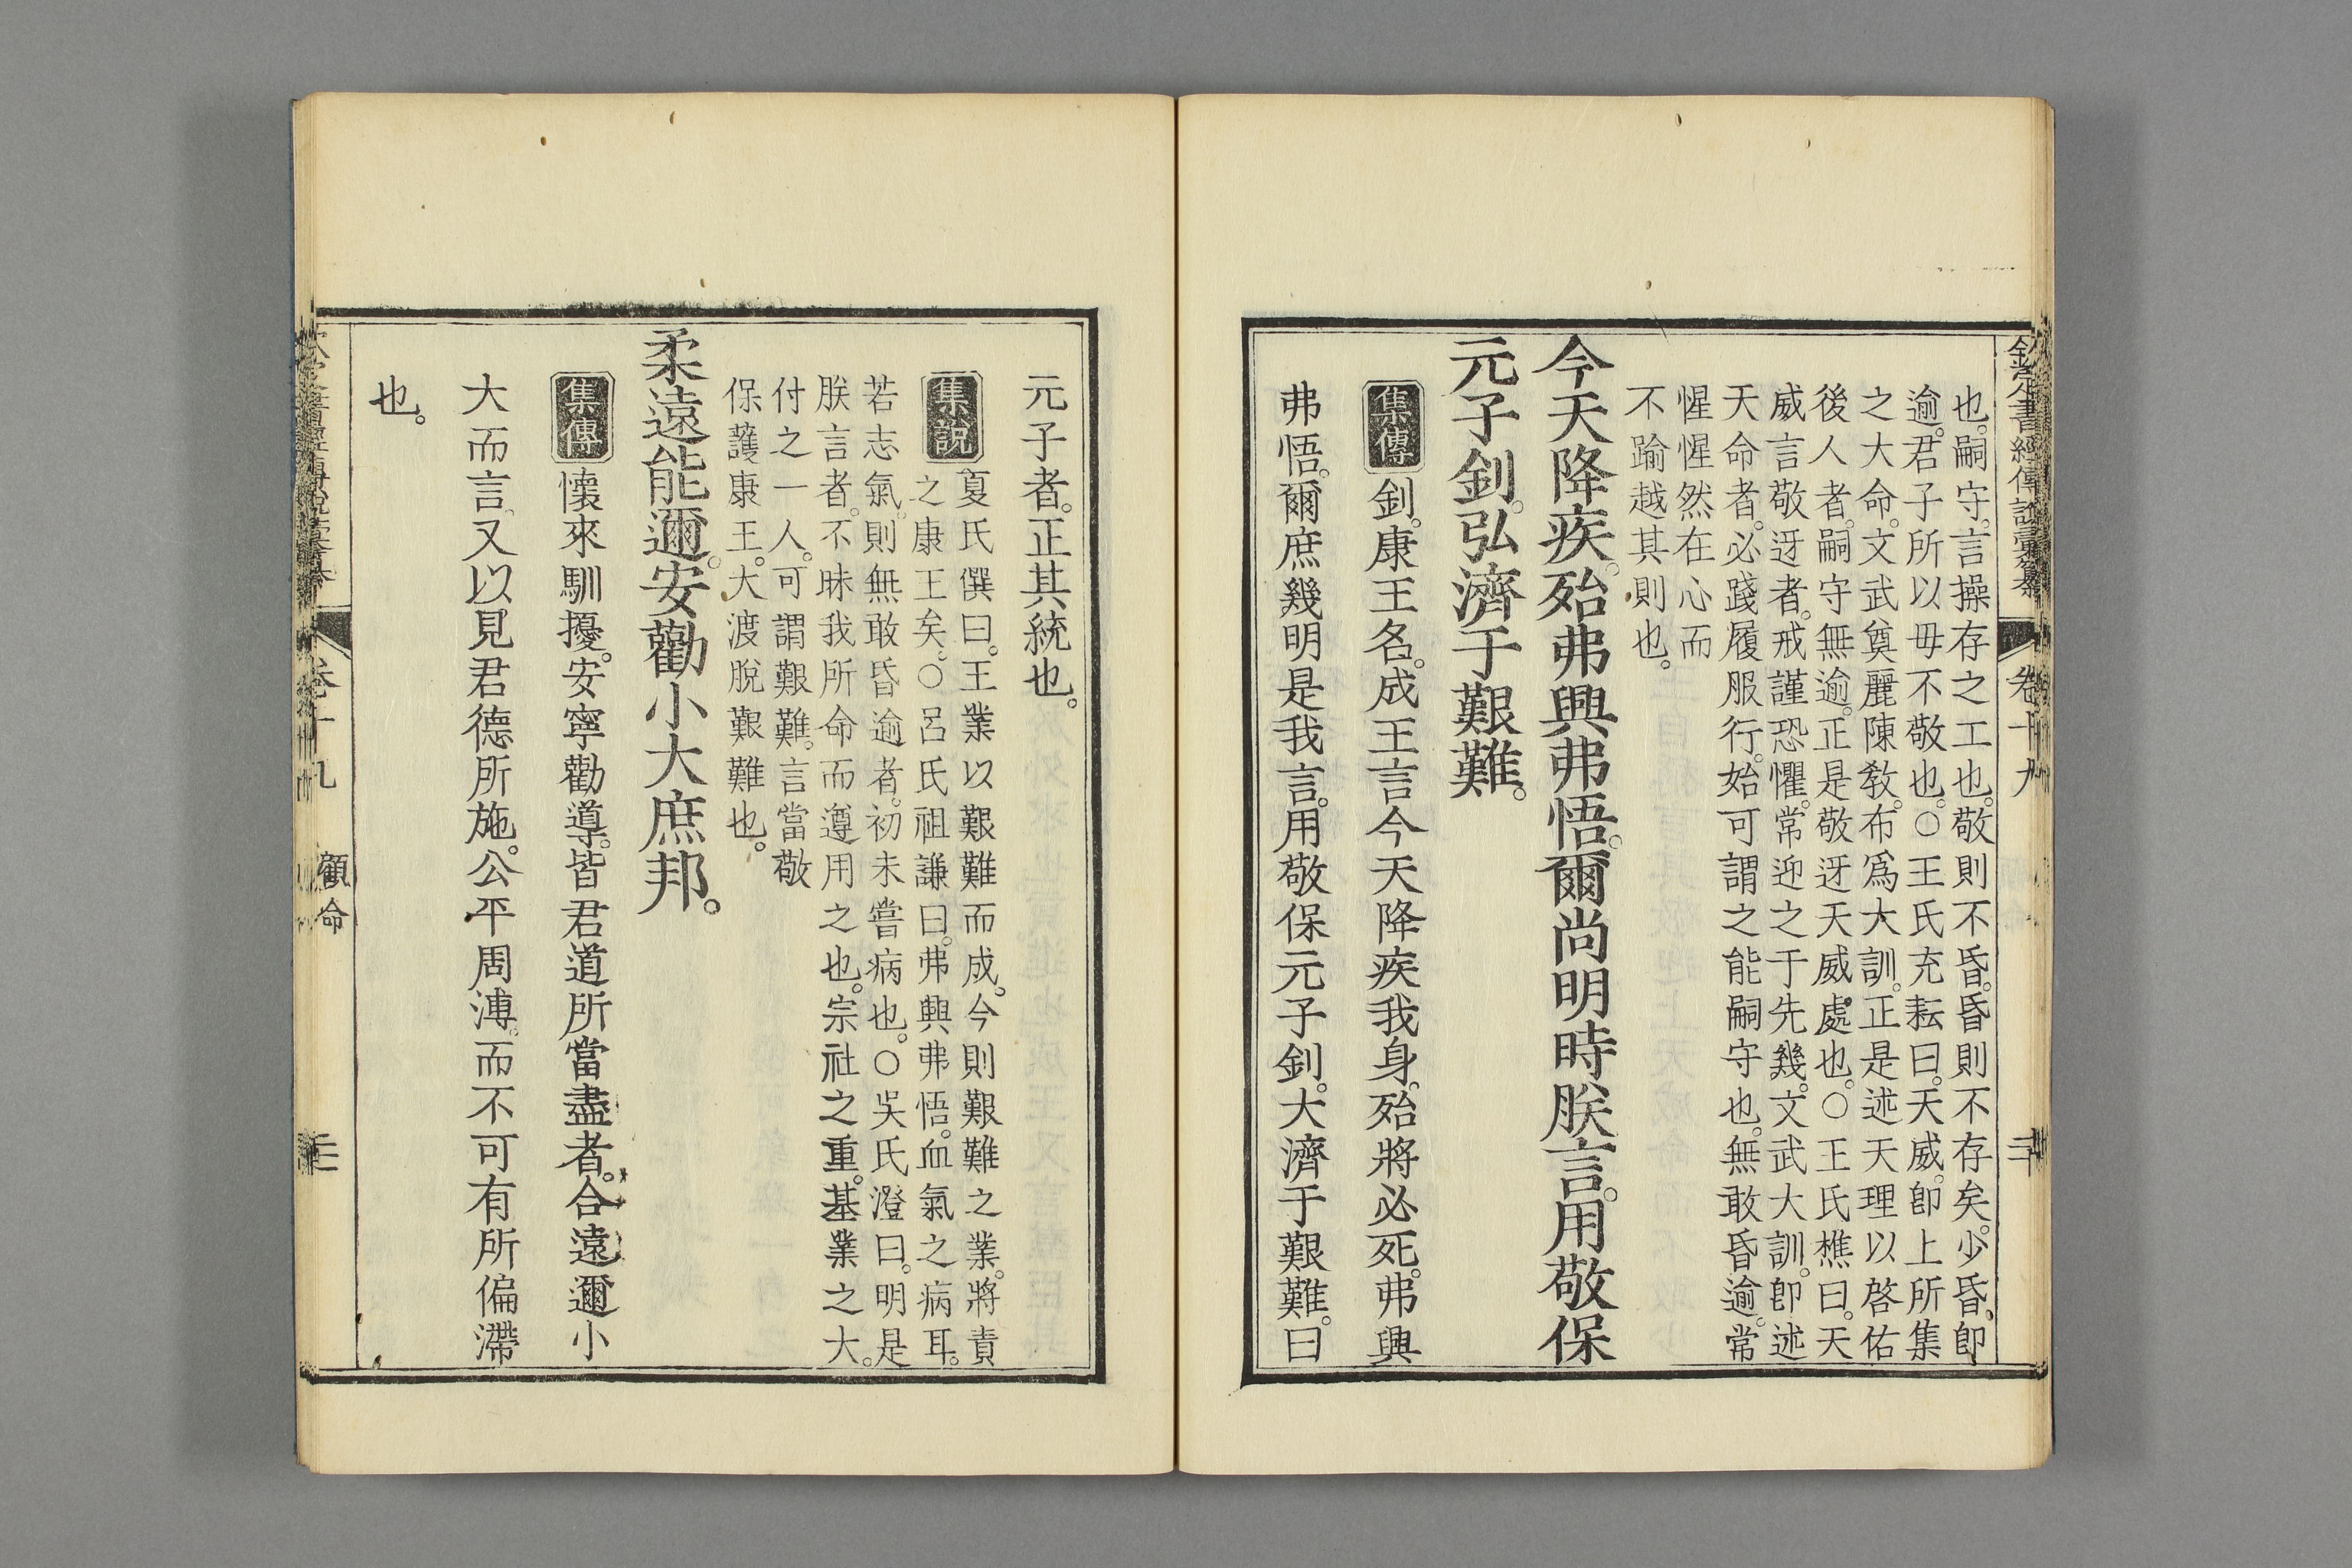 欽定書經傳說彙纂 卷十九 二十
也。嗣守。言操存之工也。敬則不昏。昏則不存矣。少昏、卽
逾。君子所以毋不敬也。○王氏充耘曰。天威。卽上所集
之大命。文武奠麗陳敎。布爲大訓。正是述天理以啓佑
後人者。嗣守無逾。正是敬迓天威處也。○王氏樵曰。天
威言敬迓者。戒謹恐懼。常迎之于先幾。文武大訓。卽述
天命者。必踐履服行。始可謂之能嗣守也。無敢昏逾。常
惺惺然在心而
不踰越其則也。
今天降疾。殆弗興弗悟。爾尚明時朕言。用敬保
元子釗。弘濟于艱難。
集傳 釗。康王名。成王言今天降疾我身。殆將必死。弗興
弗悟。爾庶幾明是我言。用敬保元子釗。大濟于艱難。曰
元子者。正其統也。
集說 夏氏僎曰。王業以艱難而成。今則艱難之業。將責
之康王矣。○呂氏祖謙曰。弗興弗悟。血氣之病耳。
若志氣。則無敢昏逾者。初未嘗病也。○吳氏澄曰。明是
朕言者。不昧我所命而遵用之也。宗社之重。基業之大。
付之一人。可謂艱難。言當敬
保護康王。大渡脫艱難也。
柔遠能邇。安勸小大庶邦。
集傳 懷來馴擾。安寧勸導。皆君道所當盡者。合遠邇小
大而言。又以見君德所施。公平周溥。而不可有所偏滯
也。
卷十九 顧命